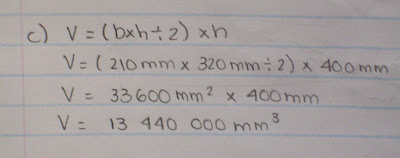 c) V = (b×h÷2) ×h
V = (210mm × 320mm÷2) × 400mm
V = 33600mm² × 400mm
V = 13 440 000 mm³